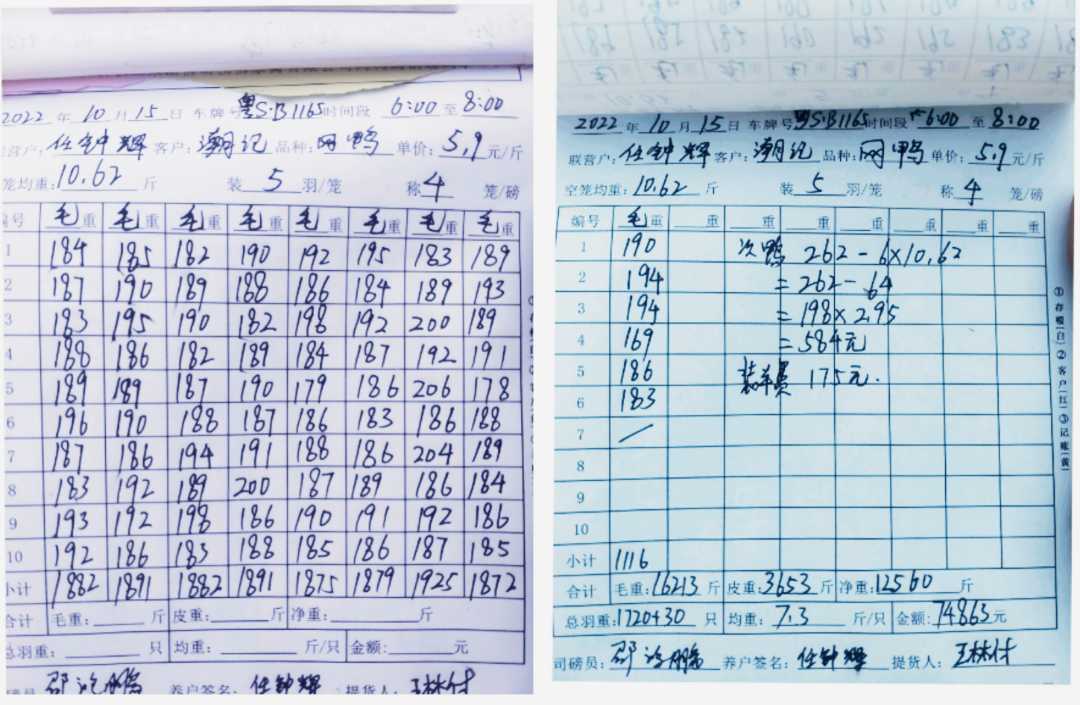 2022年10月15日 车牌号粤S·B1165时间段 6:00至8:00
联营户:任钟辉 客户:潮记 品种:网鸭 单价:5.9元/斤
笼均重:10.62斤 装5羽/笼 称4笼/磅
编号 毛重 毛重 毛重 毛重 毛重 毛重 毛重 毛重
1 184 185 182 190 192 195 183 189
2 187 190 189 188 186 184 189 193
3 183 195 190 182 198 192 200 189
4 188 186 182 189 184 187 192 191
5 189 189 187 190 179 186 206 178
6 196 190 188 187 186 183 186 188
7 187 186 194 191 188 186 204 189
8 183 192 189 200 187 189 186 184
9 193 192 198 186 190 191 192 186
10 192 186 183 188 185 186 187 185
小计 1882 1891 1882 1891 1875 1879 1925 1872
合计 毛重:斤 皮重:斤 净重:斤
总羽重:只 均重:斤/只 金额:元
养户签名:任钟辉 提货人:王林付
2022年10月15日 车牌号粤S·B1165时间段 6:00至8:00
联营户:任钟辉 客户:潮记 品种:网鸭 单价:5.9元/斤
空笼均重:10.62斤 装5羽/笼 称4笼/磅
编号 毛重 重 重 重 重 重 重 重
1 190 次鸭 262-6×10.62
2 194 =262-64
3 194 =198×2.95
4 169 =584元
5 186 装车费 175元.
6 183
7 /
8
9
10
小计 1116
合计 毛重:16213斤 皮重:3653斤 净重:12560斤
总羽重:1720+30只 均重:7.3斤/只 金额:74863元
司磅员: 养户签名:任钟辉 提货人:王林付
①存根(白)②客户(红)③记账(黄)